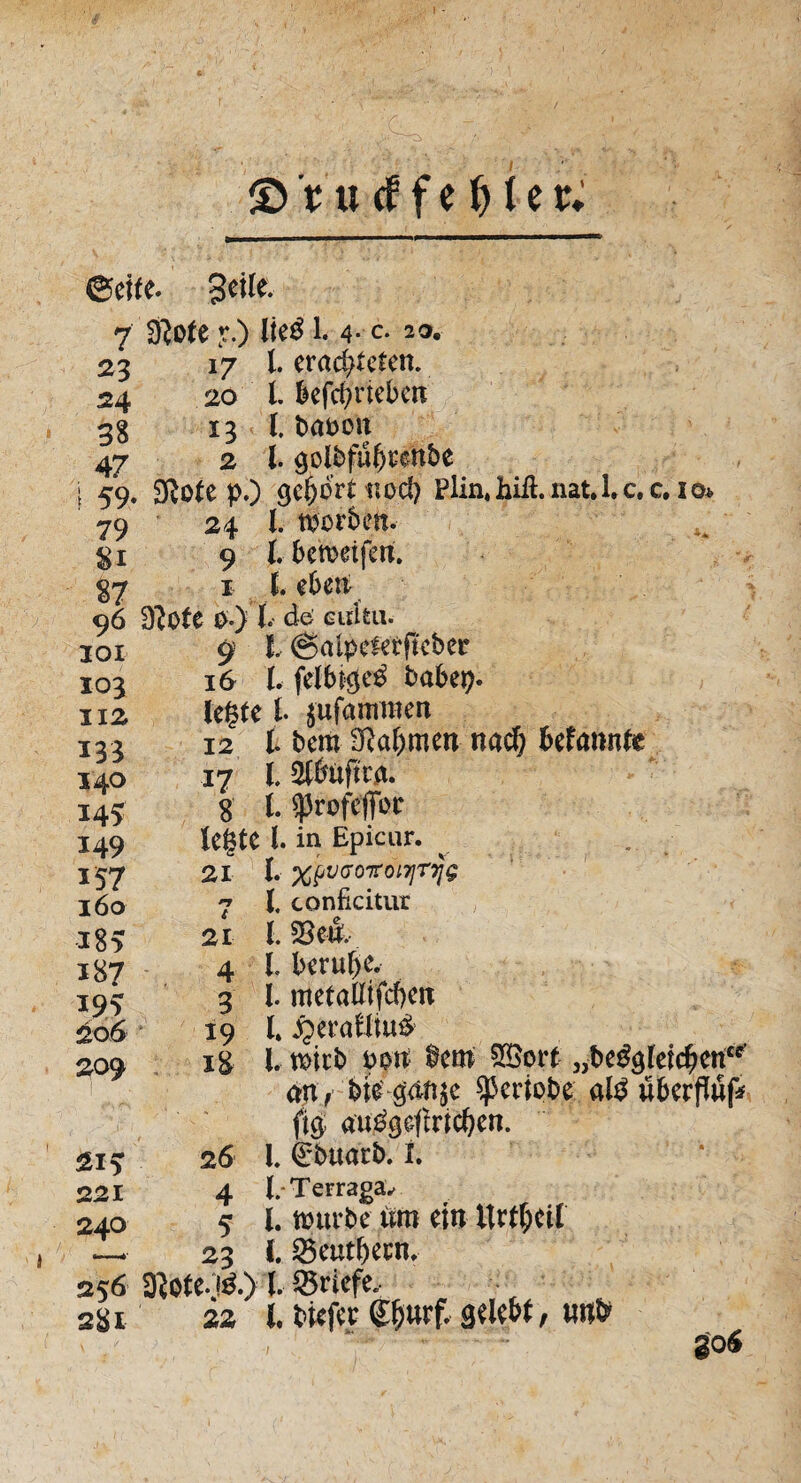 Druckfehler.
Seite. Zeile.
7 Note r.) lies l. 4. c. 20.
23 17 l. erachteten.
24 20 l. beschrieben
38 13 l. davon
47 2 l. goldführende
59. Note p.) gehört noch Plin. hist. nat. l. c. c. 10.
79 24 l. worden.
81 9 l. beweisen.
87 1 l. eben
96 Note o.) l. de cultu.
101 9 l. Salpetersieber
103 16 l. selbiges dabey.
112 letzte l. zusammen
133 12 l. dem Nahmen nach bekannte
140 17 l. Abustra.
145 8 l. Professor
149 letzte l. in Epicur.
157 21 l. χρυσοποιητης
160 7 l. conficitur
185 21 l. Beü.
187 4 l. beruhe.
195 3 l. metallischen
206 19 l. Heraklius
209 18 l. wird von dem Wort „desgleichen“
an, die ganze Periode als überflüs-
sig ausgestrichen.
215 26 l. Eduard. I.
221 4 l. Terraga.
240 5 l. wurde um ein Urtheil
— 23 l. Beuthern.
256 Note l. Briefe.
281 22 l. dieser Churf. gelebt, und